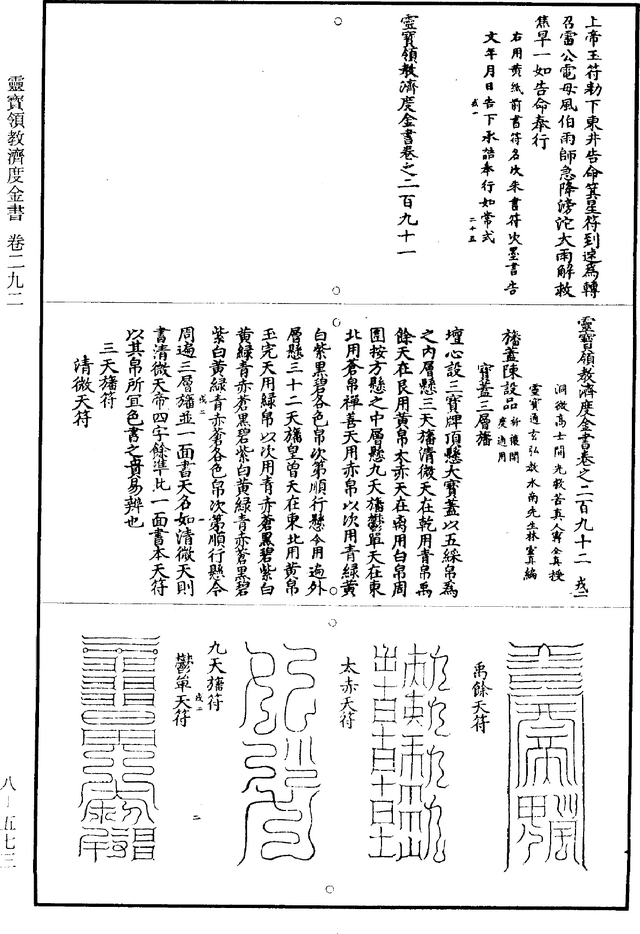 靈寶領教濟度金書 卷二九二
八—五七三
上帝玉符勑下東井告命箕星符到速爲轉
召雷公電母風伯雨師急降滂沱大雨解救
焦旱一如告命奉行
右用黄紙前書符名次朱書符次墨書告
文年月日告下承誥奉行如常式
戎一
二十五
靈寶領教濟度金書卷之二百九十一
靈寶領教濟度金書卷之二百九十二 戎二
洞微高士開先敎苦真人甯全真授
靈寶通玄弘教水南先生林靈真編
旛蓋陳設品 祈禳開度通用
寶蓋三層旛
壇心設三寶牌頂懸大寶蓋以五綵帛爲
之内層懸三天旛清微天在乾用青帛禹
餘天在艮用黄帛太赤天在西用白帛周
圍按方懸之中層懸九天旛鬱單天在東
北用蒼帛禪善天用赤帛以次用青綠黄
白紫黒碧各色帛次第順行懸令用遍外
層懸三十二天旛皇曾天在東北用黄帛
玉完天用綠帛以次用青赤蒼黒碧紫白
黄綠青赤蒼黒碧紫白黄綠青赤蒼黒碧
紫白黄綠青赤蒼各色帛次第順行懸令
戎二
一
周遍三層旛並一面書天名如清微天則
書清微天帝四字餘準此一面書本天符
以其帛所宜色書之貴易辨也
三天旛符
清微天符
禹餘天符
太赤天符
九天旛符
戎二
二
鬱單天符